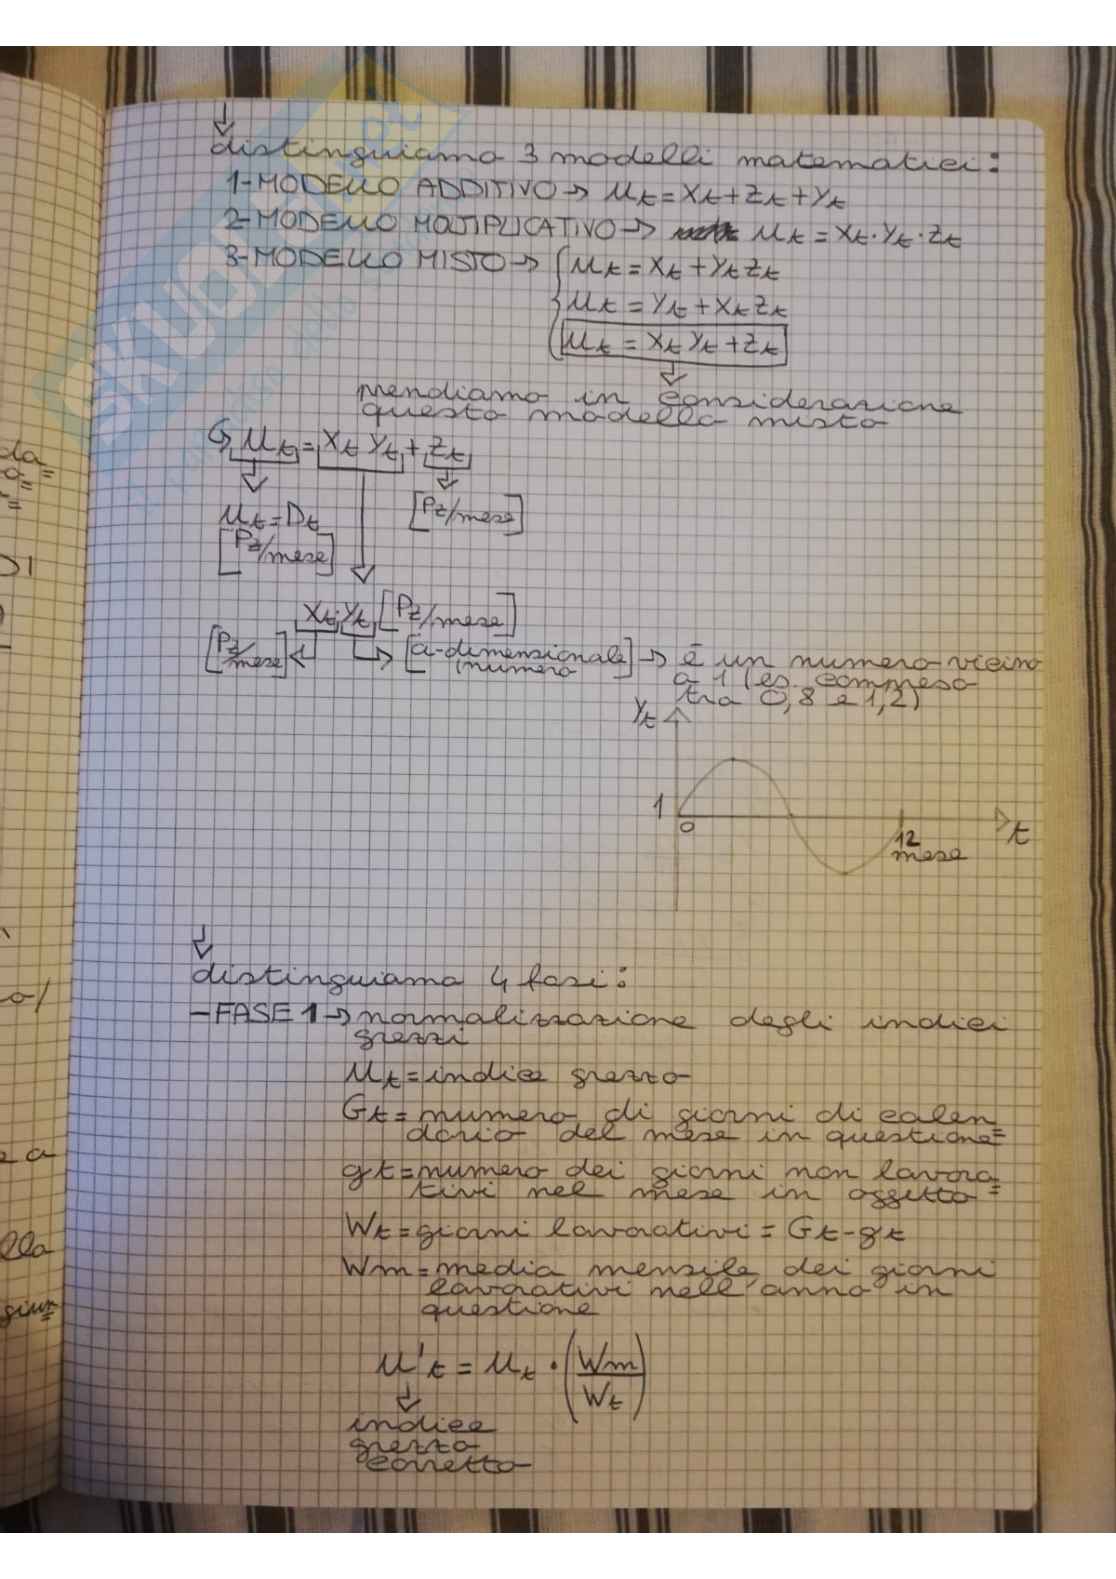 ↓
distinguiamo 3 modelli matematici:
1-MODELLO ADDITIVO → Mt = Xt + Zt + Yt
2-MODELLO MOLTIPLICATIVO → Mt = Xt · Yt · Zt
3-MODELLO MISTO → { Mt = Xt + Yt Zt
Mt = Yt + Xt Zt
Mt = Xt Yt + Zt
↓
prendiamo in considerazione
questo modello misto
↳ Mt = Xt Yt + Zt
Mt = Dt
[Pz/mese]
[Pz/mese]
Xt · Yt [Pz/mese]
[Pz/mese] ← → [a-dimensionale] → è un numero vicino
numero
a 1 (es. compreso
tra 0,8 e 1,2)
Yt
1
0
12
mese
t
↓
distinguiamo 4 fasi:
-FASE 1 → normalizzazione degli indici
grezzi
Mt = indice grezzo
Gt = numero di giorni di calen=
dario del mese in questione
gt = numero dei giorni non lavora=
tivi nel mese in oggetto
Wt = giorni lavorativi = Gt - gt
Wm = media mensile dei giorni
lavorativi nell'anno in
questione
M't = Mt · (Wm/Wt)
↓
indice
grezzo
corretto
da=
DI
o/
e a
lla
giun=
SKUOLA.net